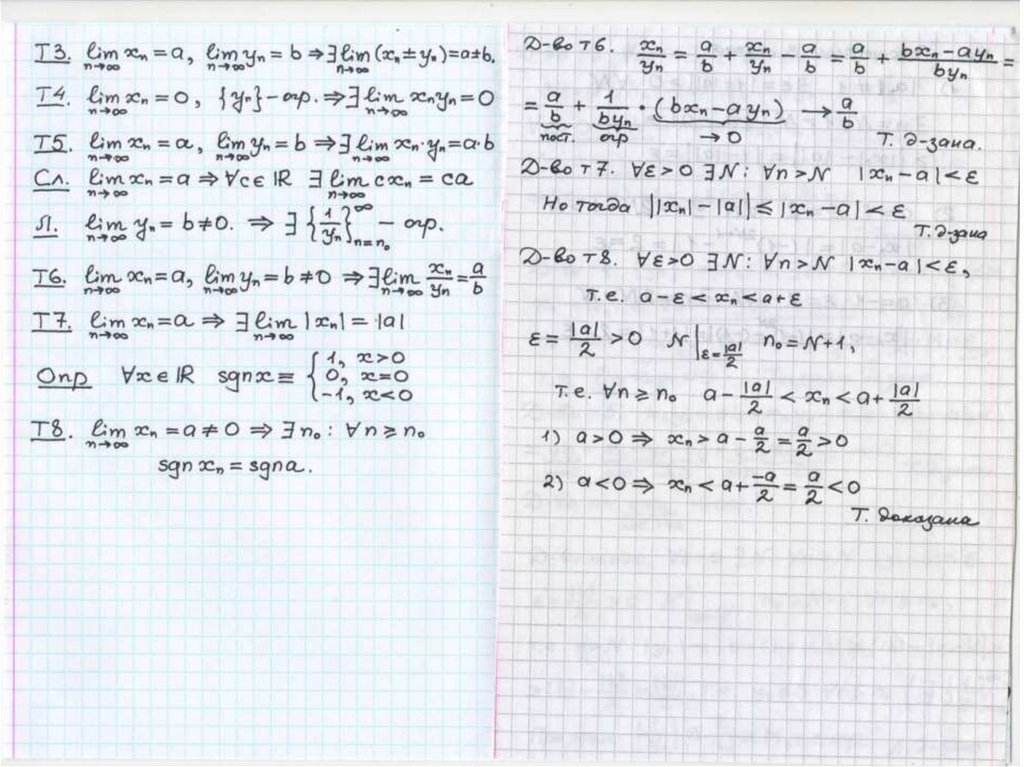 Т3. lim xₙ = a, lim yₙ = b ⇒ ∃ lim (xₙ ± yₙ) = a ± b.
n→∞ n→∞ n→∞
Т4. lim xₙ = 0, {yₙ} – огр. ⇒ ∃ lim xₙyₙ = 0
n→∞ n→∞
Т5. lim xₙ = a, lim yₙ = b ⇒ ∃ lim xₙ·yₙ = a·b
n→∞ n→∞ n→∞
Сл. lim xₙ = a ⇒ ∀c∈ℝ ∃ lim cxₙ = ca
n→∞ n→∞
Л. lim yₙ = b ≠ 0. ⇒ ∃ {1/yₙ}^∞_{n=n₀} – огр.
n→∞
Т6. lim xₙ = a, lim yₙ = b ≠ 0 ⇒ ∃ lim xₙ/yₙ = a/b
n→∞ n→∞ n→∞
Т7. lim xₙ = a ⇒ ∃ lim |xₙ| = |a|
n→∞ n→∞
Опр ∀x∈ℝ sgn x ≡ { 1, x>0
0, x=0
-1, x<0
Т8. lim xₙ = a ≠ 0 ⇒ ∃ n₀: ∀n ≥ n₀
n→∞
sgn xₙ = sgn a.
Д-во т6. xₙ/yₙ = a/b + xₙ/yₙ - a/b = a/b + (bxₙ - ayₙ)/(byₙ) =
= a/b + 1/(byₙ) · (bxₙ - ayₙ) → a/b
пост. огр → 0 Т. д-зана.
Д-во т7. ∀ε>0 ∃N: ∀n>N |xₙ - a| < ε
Но тогда ||xₙ| - |a|| ≤ |xₙ - a| < ε
Т. д-зана
Д-во т8. ∀ε>0 ∃N: ∀n>N |xₙ - a| < ε,
т.е. a - ε < xₙ < a + ε
ε = |a|/2 > 0 N|_{ε=|a|/2} n₀ = N+1,
т.е. ∀n ≥ n₀ a - |a|/2 < xₙ < a + |a|/2
1) a > 0 ⇒ xₙ > a - a/2 = a/2 > 0
2) a < 0 ⇒ xₙ < a + -a/2 = a/2 < 0
Т. доказана